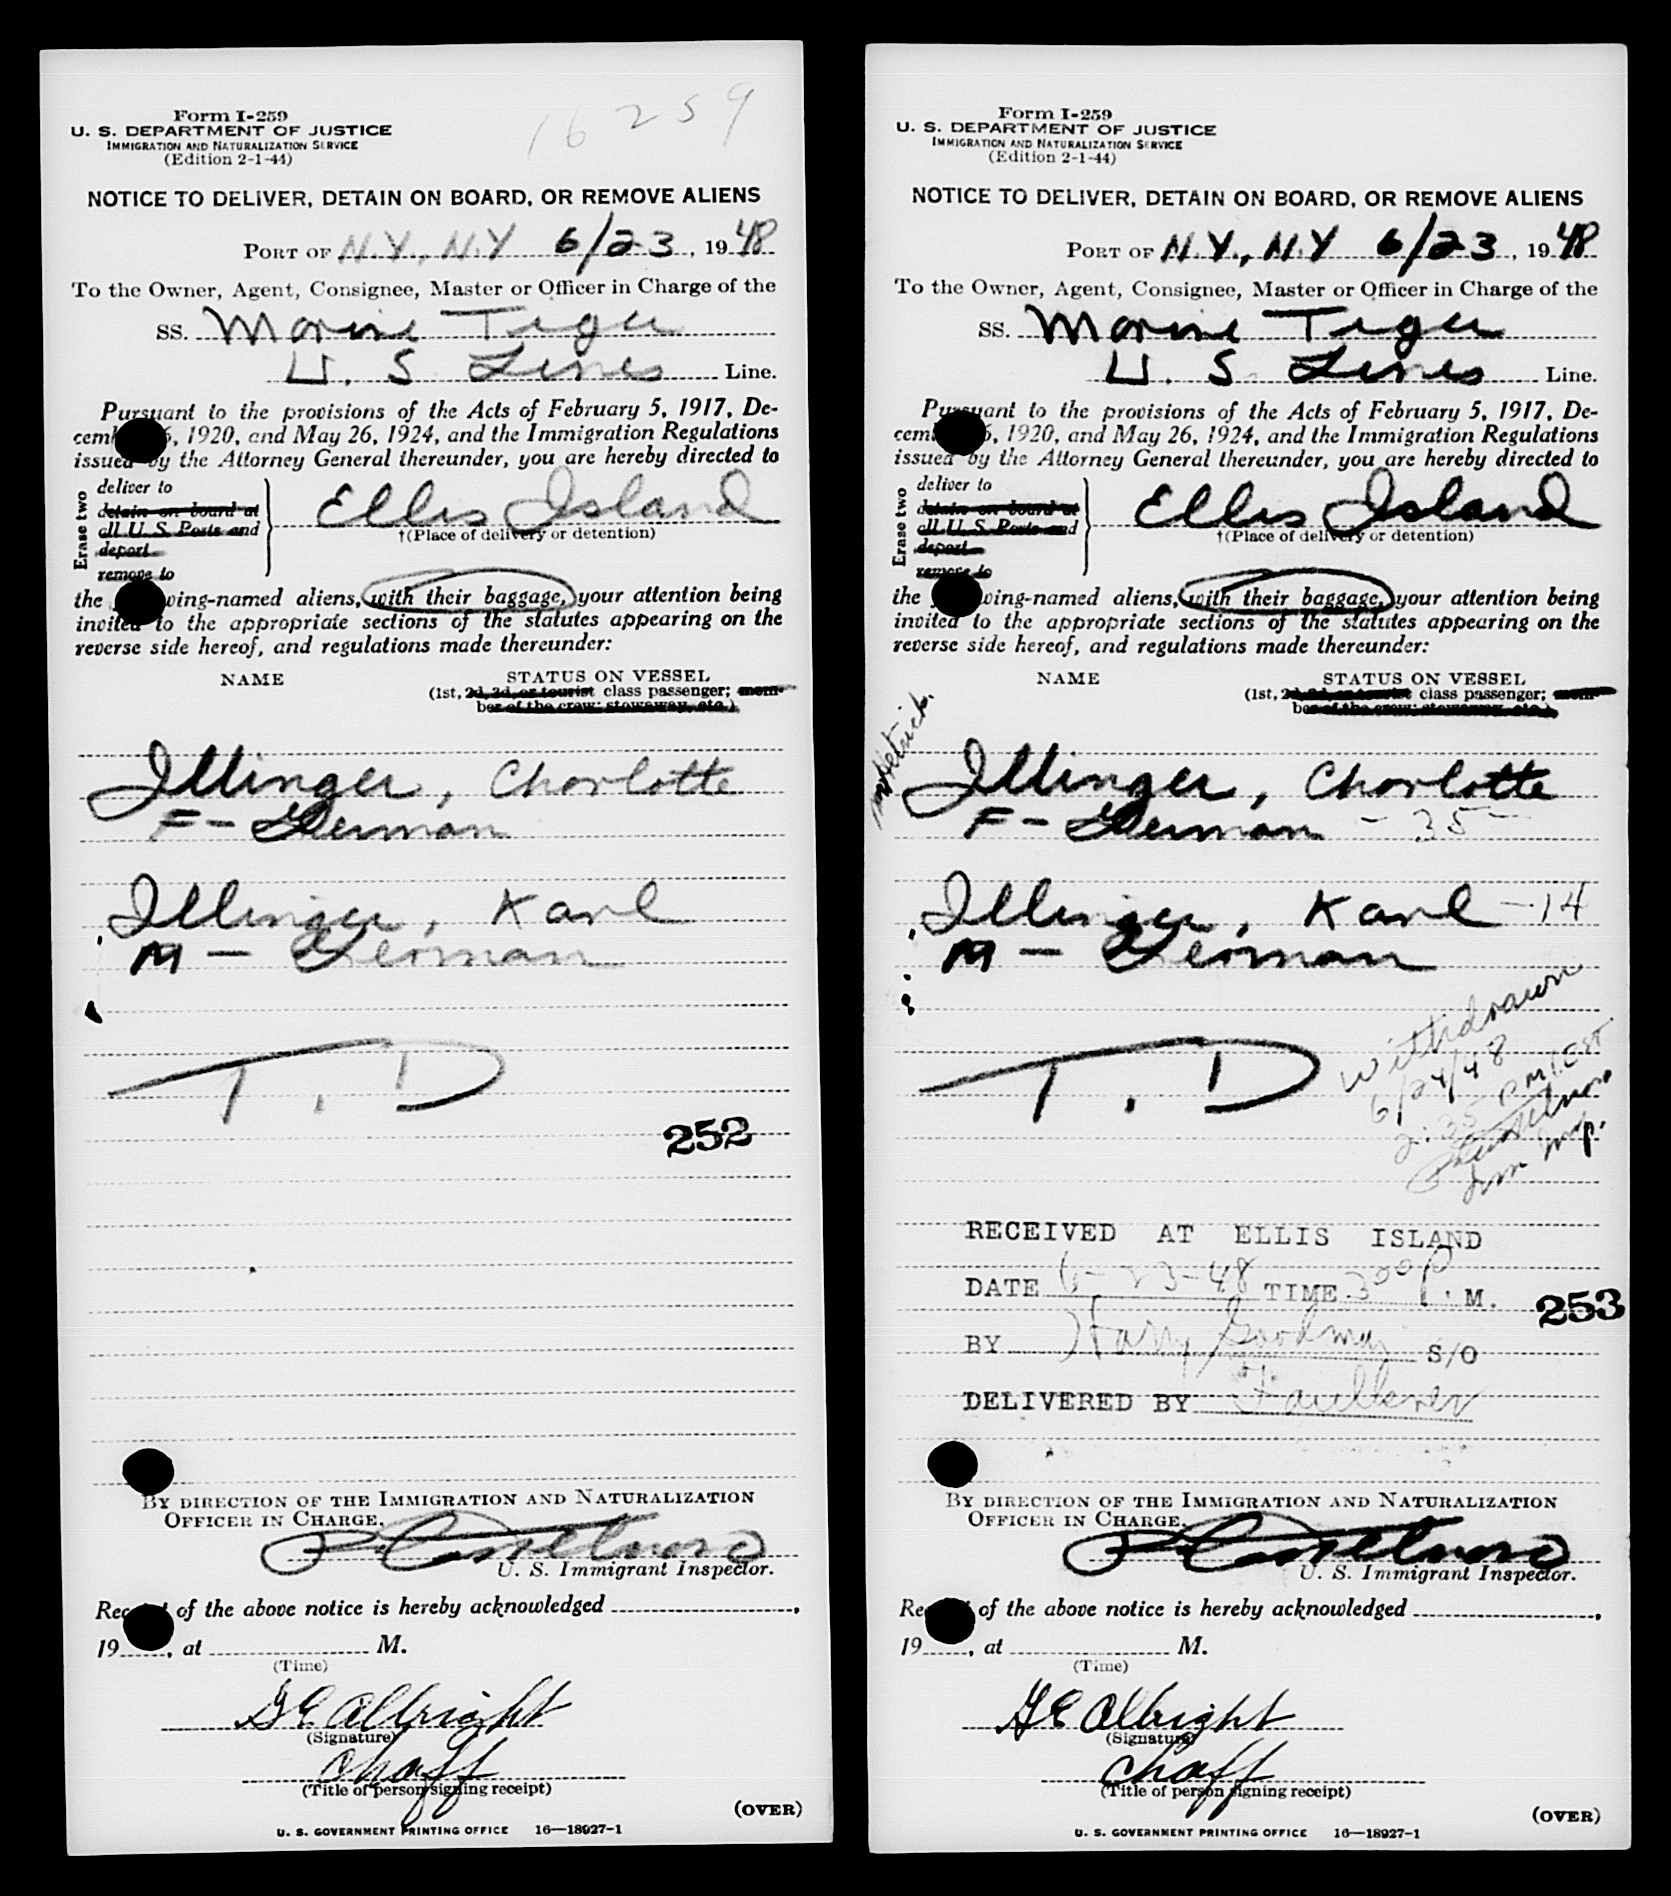 Form I-259
16259
U. S. DEPARTMENT OF JUSTICE
IMMIGRATION AND NATURALIZATION SERVICE
(Edition 2-1-44)
NOTICE TO DELIVER, DETAIN ON BOARD, OR REMOVE ALIENS
PORT OF N.Y., N.Y 6/23, 1948
To the Owner, Agent, Consignee, Master or Officer in Charge of the
SS. Marine Tiger
U. S. Lines Line.
Pursuant to the provisions of the Acts of February 5, 1917, De-
cem 6, 1920, and May 26, 1924, and the Immigration Regulations
issued by the Attorney General thereunder, you are hereby directed to
Erase two
deliver to
detain on board at
all U. S. Ports and
deport
remove to
Ellis Island
†(Place of delivery or detention)
the wing-named aliens, with their baggage, your attention being
invited to the appropriate sections of the statutes appearing on the
reverse side hereof, and regulations made thereunder:
NAME STATUS ON VESSEL
(1st, 2d, 3d, or tourist class passenger; mem-
ber of the crew; stowaway, etc.)
Illinger, Charlotte
F - German
Illinger, Karl
M - German
T. D
252
BY DIRECTION OF THE IMMIGRATION AND NATURALIZATION
OFFICER IN CHARGE,
U. S. Immigrant Inspector.
Rec t of the above notice is hereby acknowledged ,
19 , at M.
(Time)
G E Albright
(Signature)
Chaff
(Title of person signing receipt)
(OVER)
U. S. GOVERNMENT PRINTING OFFICE 16—18927-1
Form I-259
U. S. DEPARTMENT OF JUSTICE
IMMIGRATION AND NATURALIZATION SERVICE
(Edition 2-1-44)
NOTICE TO DELIVER, DETAIN ON BOARD, OR REMOVE ALIENS
PORT OF N.Y., N.Y 6/23, 1948
To the Owner, Agent, Consignee, Master or Officer in Charge of the
SS. Marine Tiger
U. S. Lines Line.
Pursuant to the provisions of the Acts of February 5, 1917, De-
cem 6, 1920, and May 26, 1924, and the Immigration Regulations
issued by the Attorney General thereunder, you are hereby directed to
Erase two
deliver to
detain on board at
all U. S. Ports and
deport
remove to
Ellis Island
†(Place of delivery or detention)
the wing-named aliens, with their baggage, your attention being
invited to the appropriate sections of the statutes appearing on the
reverse side hereof, and regulations made thereunder:
NAME STATUS ON VESSEL
(1st, 2d, 3d, or tourist class passenger; mem-
ber of the crew; stowaway, etc.)
Illinger, Charlotte
F - German - 35 -
Illinger, Karl - 14
M - German
T. D
Withdrawn
6/24/48
2:35 P.M. EST
Imm Insp.
RECEIVED AT ELLIS ISLAND
DATE 6-23-48 TIME 3 00 P. M.
253
BY Harry Goodman S/O
DELIVERED BY Faulkner
BY DIRECTION OF THE IMMIGRATION AND NATURALIZATION
OFFICER IN CHARGE,
U. S. Immigrant Inspector.
Re t of the above notice is hereby acknowledged ,
19 , at M.
(Time)
G E Albright
(Signature)
Chaff
(Title of person signing receipt)
(OVER)
U. S. GOVERNMENT PRINTING OFFICE 16—18927-1